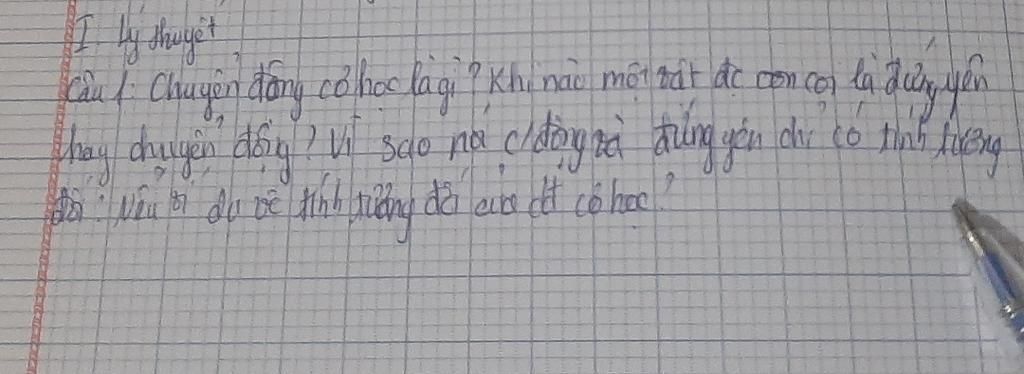 I. Lý thuyết
Câu 1: Chuyển động cơ học là gì? Khi nào một vật đc con coi là đứng yên
hay chuyển động? Vì sao nói c/động và đứng yên chỉ có tính tương
đối? Nêu ví dụ về tính tương đối của cđ cơ học?